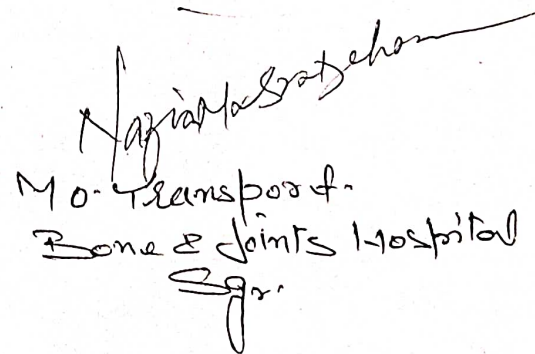 Nazia
M o. Transport.
Bone & Joints Hospital
Sgr.